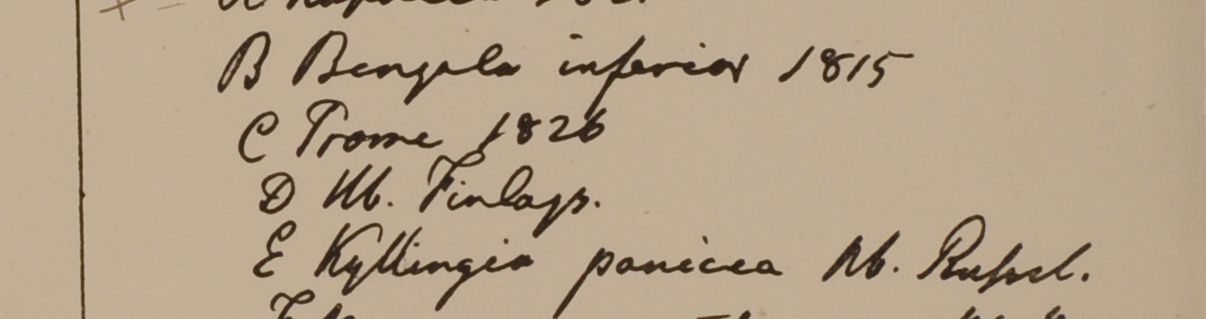 B Bengala inferior 1815
C Prome 1826
D Hb. Finlays.
E Kyllingia panicea Hb. Russel.